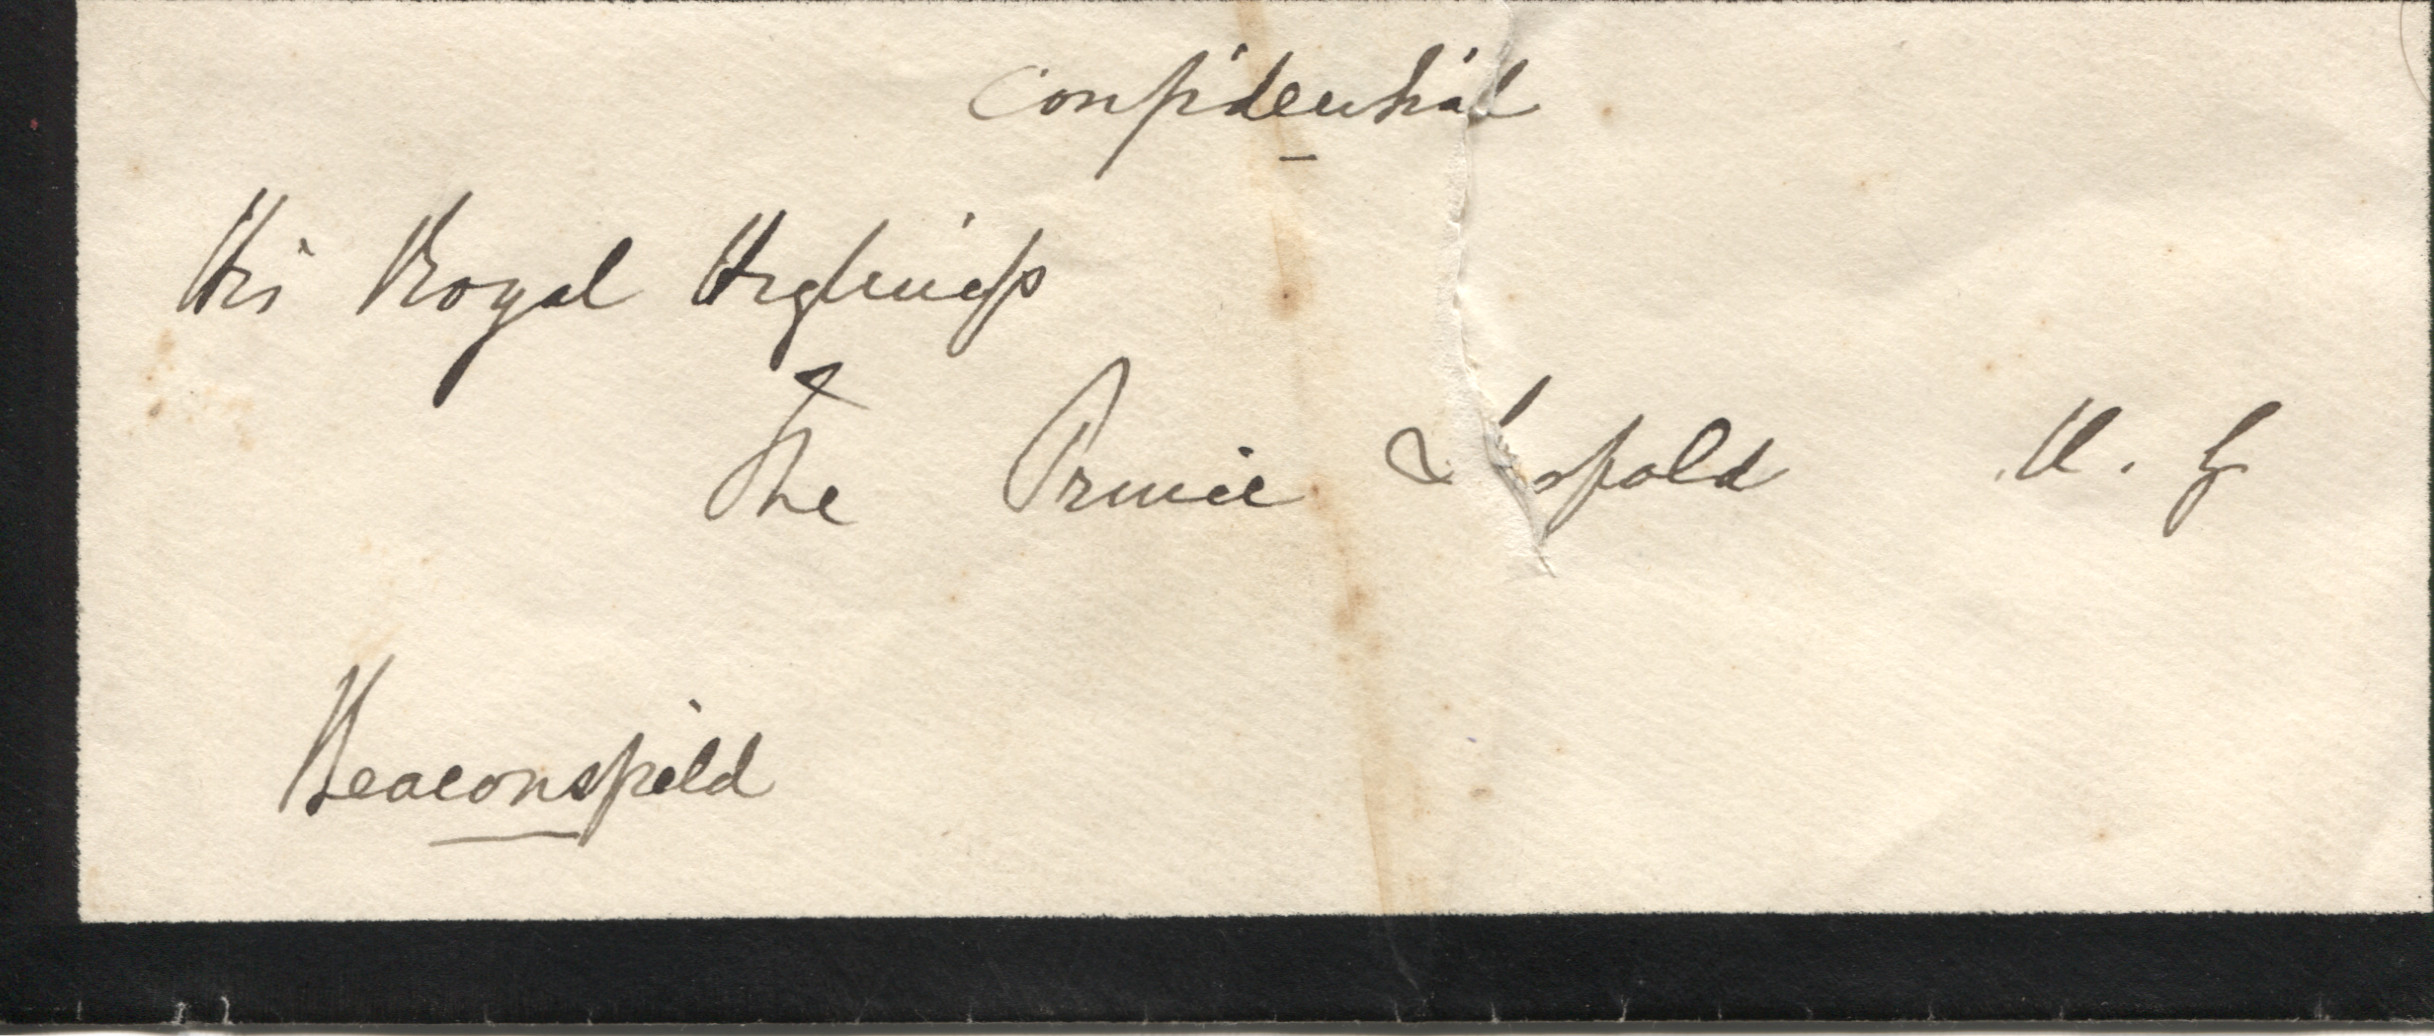 Confidential
His Royal Highness
The Prince Leopold K. G
Beaconsfield